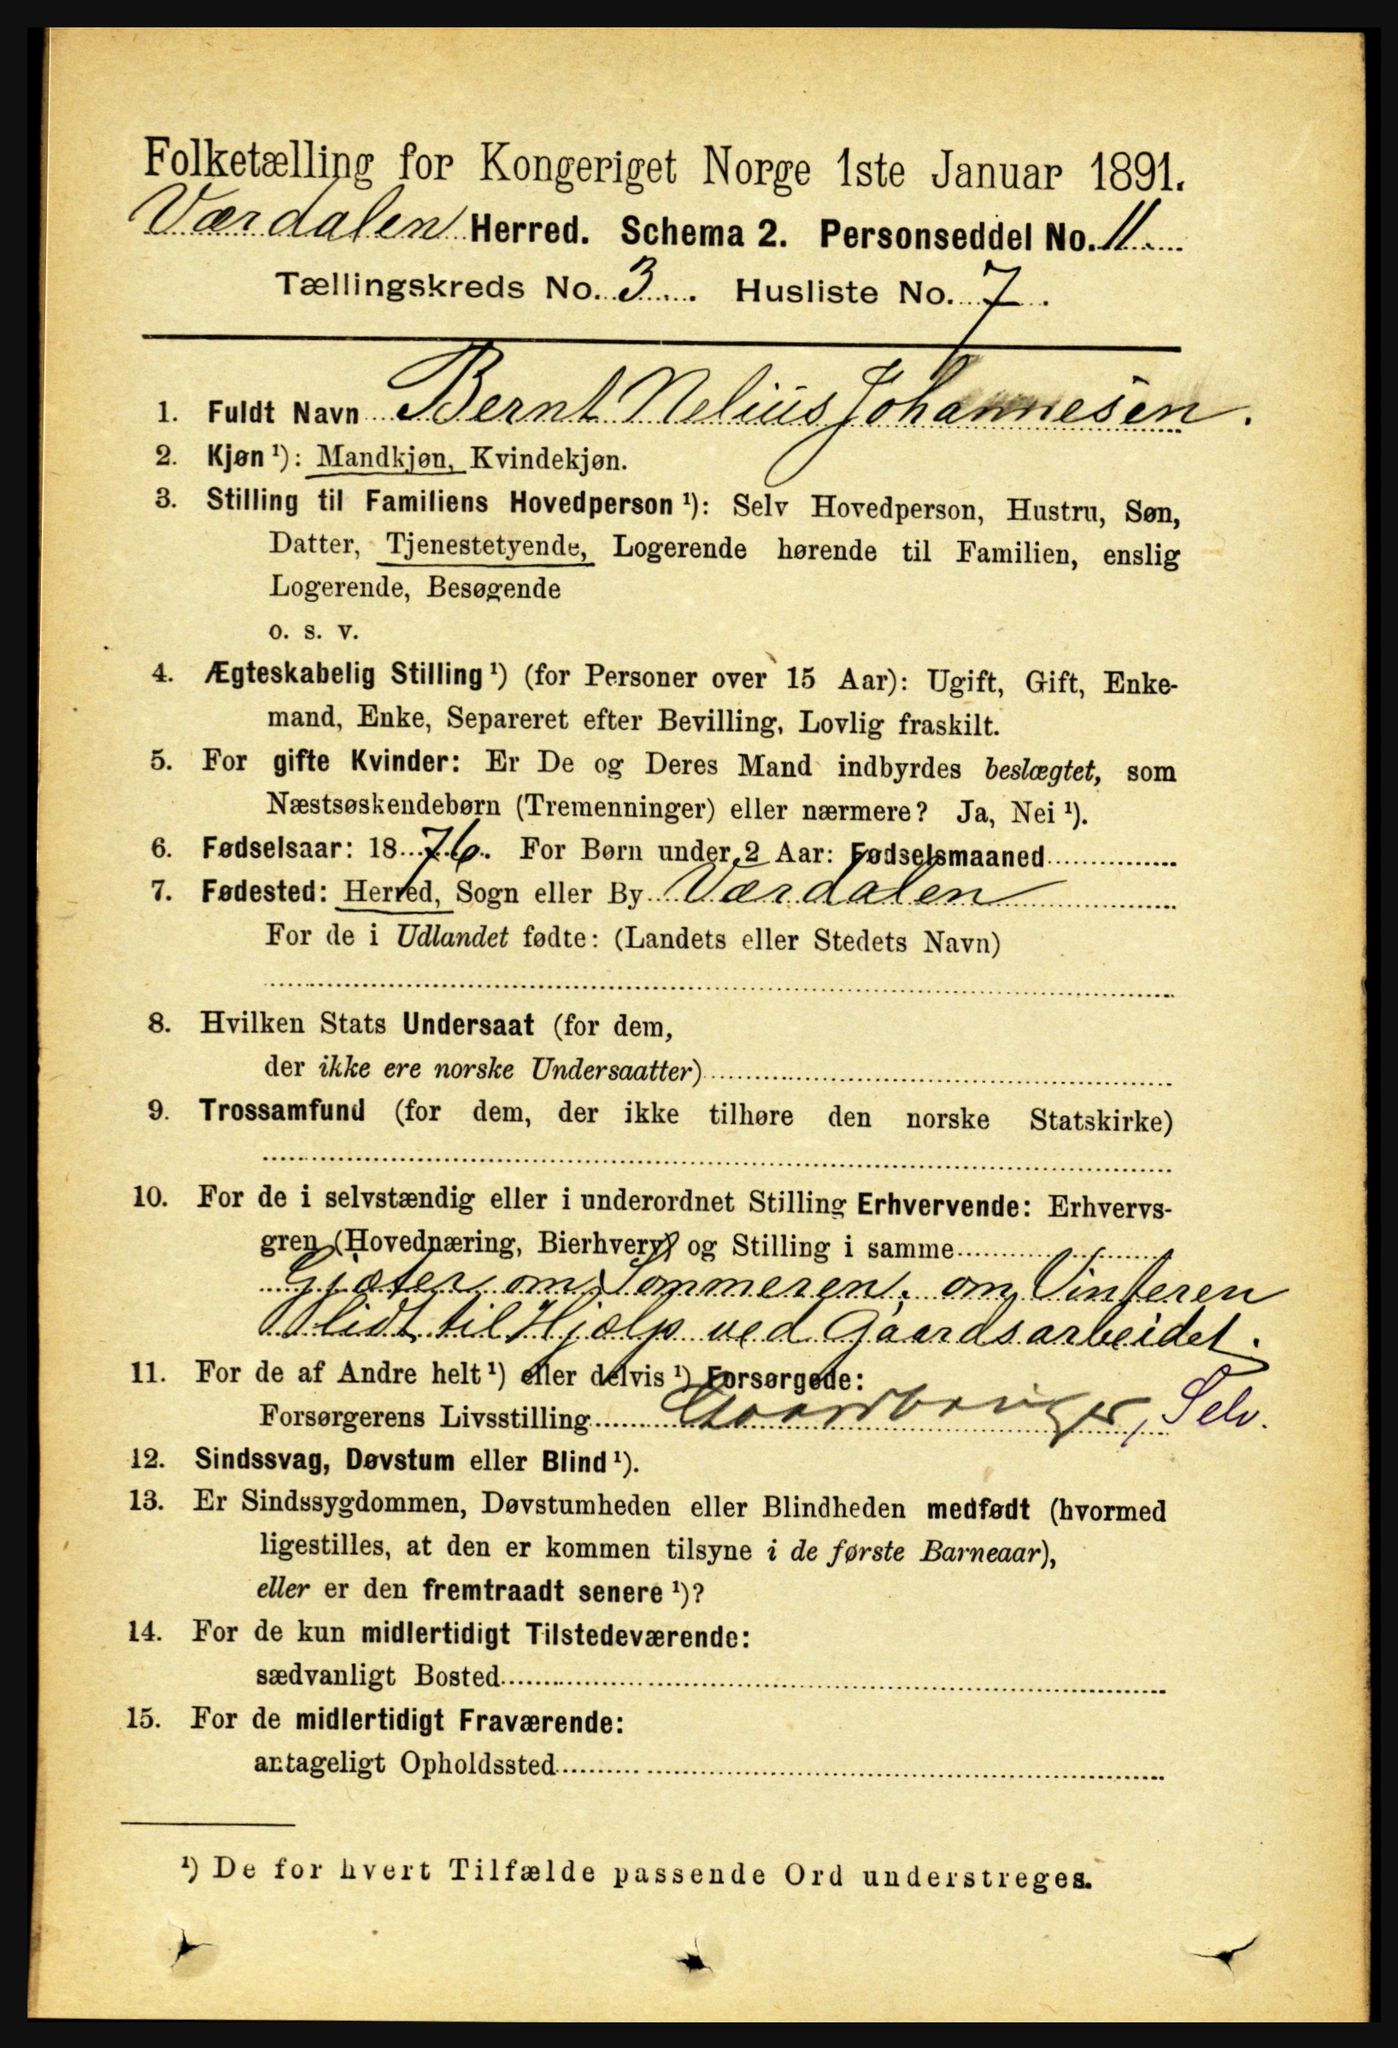 Folketælling for Kongeriget Norge 1ste Januar 1891.
Værdalen Herred. Schema 2. Personseddel No. 11.
Tællingskreds No. 3. Husliste No. 7.
1. Fuldt Navn Bernt Nelius Johannesen.
2. Kjøn ¹): Mandkjøn, Kvindekjøn.
3. Stilling til Familiens Hovedperson ¹): Selv Hovedperson, Hustru, Søn,
Datter, Tjenestetyende, Logerende hørende til Familien, enslig
Logerende, Besøgende
o. s. v.
4. Ægteskabelig Stilling ¹) (for Personer over 15 Aar): Ugift, Gift, Enke-
mand, Enke, Separeret efter Bevilling, Lovlig fraskilt.
5. For gifte Kvinder: Er De og Deres Mand indbyrdes beslægtet, som
Næstsøskendebørn (Tremenninger) eller nærmere? Ja, Nei ¹).
6. Fødselsaar: 1876. For Børn under 2 Aar: Fødselsmaaned
7. Fødested: Herred, Sogn eller By Værdalen
For de i Udlandet fødte: (Landets eller Stedets Navn)
8. Hvilken Stats Undersaat (for dem,
der ikke ere norske Undersaatter)
9. Trossamfund (for dem, der ikke tilhøre den norske Statskirke)
10. For de i selvstændig eller i underordnet Stilling Erhvervende: Erhvervs-
gren (Hovednæring, Bierhverv) og Stilling i samme
Gjæter om Sommeren, om Vinteren
lidt til Hjælp ved Gaardsarbeidet.
11. For de af Andre helt ¹) eller delvis ¹) Forsørgede:
Forsørgerens Livsstilling Gaardbruger, Selv.
12. Sindssvag, Døvstum eller Blind ¹).
13. Er Sindssygdommen, Døvstumheden eller Blindheden medfødt (hvormed
ligestilles, at den er kommen tilsyne i de første Barneaar),
eller er den fremtraadt senere ¹)?
14. For de kun midlertidigt Tilstedeværende:
sædvanligt Bosted
15. For de midlertidigt Fraværende:
antageligt Opholdssted
¹) De for hvert Tilfælde passende Ord understreges.